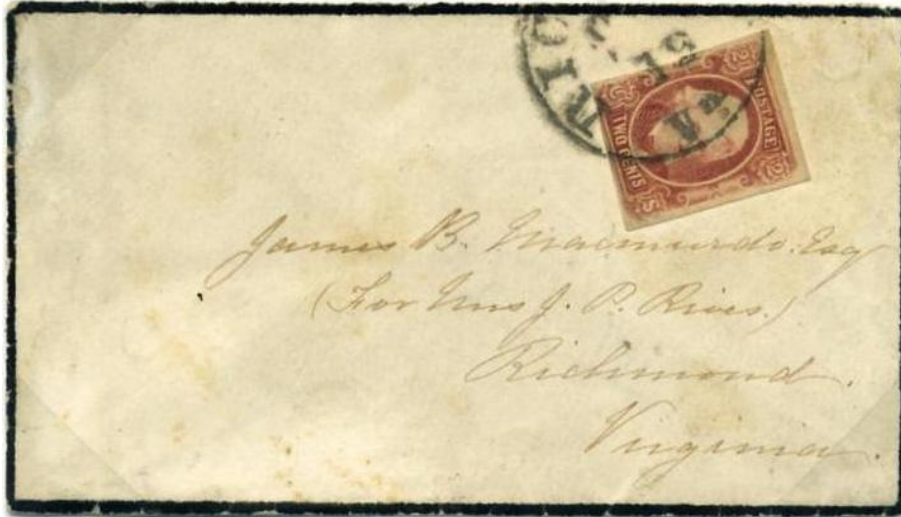 RIC
SE
VA
POSTAGE
TWO CENTS
James B. Macmurdo. Esq
(For Mrs J. P. Rives.)
Richmond.
Virginia.